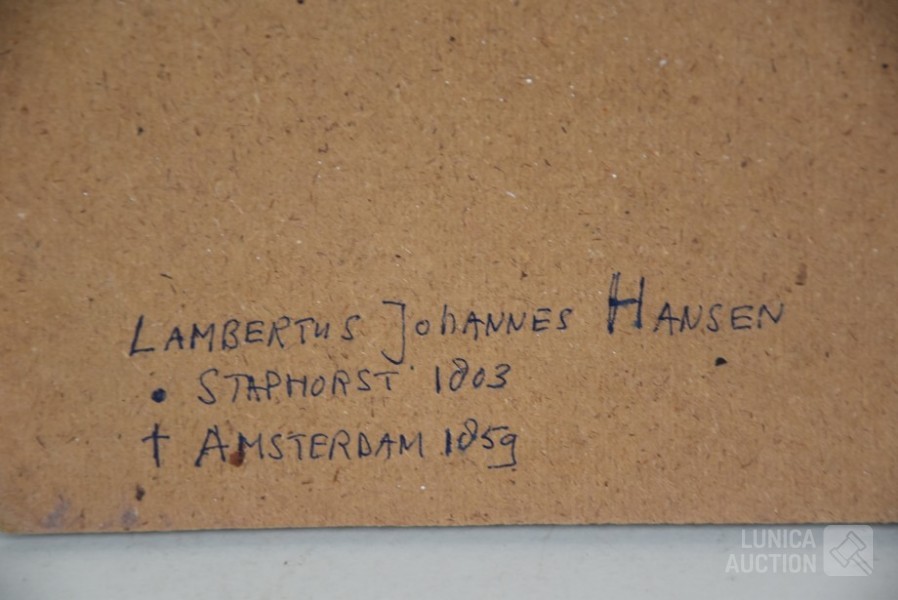 LAMBERTUS JOHANNES HANSEN
• STAPHORST 1803
† AMSTERDAM 1859
LUNICA
AUCTION